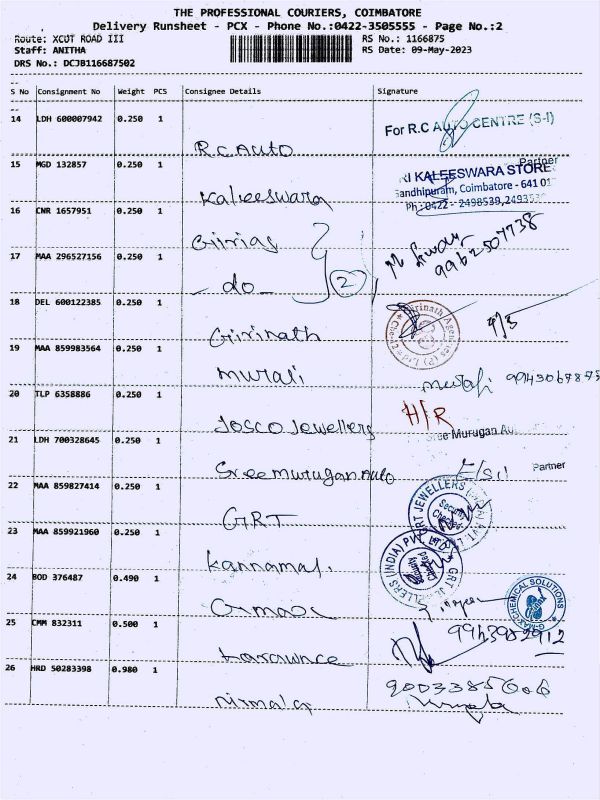 THE PROFESSIONAL COURIERS, COIMBATORE
Delivery Runsheet - PCX - Phone No.:0422-3505555 - Page No.:2
Route: XCUT ROAD III RS No.: 1166875
Staff: ANITHA RS Date: 09-May-2023
DRS No.: DCJB116687502
S No Consignment No Weight PCS Consignee Details Signature
14 LDH 600007942 0.250 1 R.C Auto For R.C AUTO CENTRE (S-I)
Partner
15 MGD 132857 0.250 1 Kaleeswara SRI KALEESWARA STORE
Gandhipuram, Coimbatore - 641 01
Ph : 0422 - 2498539, 249353
16 CNR 1657951 0.250 1 Girias
9962507738
17 MAA 296527156 0.250 1 - do - 2
18 DEL 600122385 0.250 1 Girinath Girinath Agencies (P) Ltd
19 MAA 859983564 0.250 1 murali murali
20 TLP 6358886 0.250 1 Josco Jewellers H/R
21 LDH 700328645 0.250 1 Sree murugan Auto Sree Murugan Au
Partner
22 MAA 859827414 0.250 1 GRT GRT JEWELLERS
Security
23 MAA 859921960 0.250 1 Kannamal GRT JEWELLERS (INDIA) PVT. LTD
24 BOD 376487 0.490 1 G-max G-MAX CHEMICAL SOLUTIONS
25 CMM 832311 0.500 1 9943982912
26 HRD 50283398 0.980 1 Nirmala